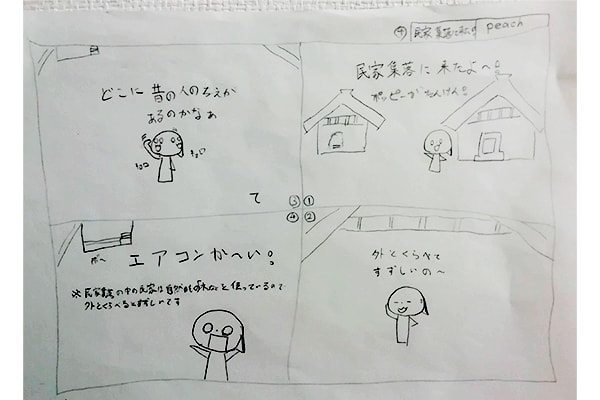 ④ 民家集落 peach
①
民家集落に来たよ〜!
ポッピーがたんけん!
②
外とくらべて
すずしいの〜
③
どこに昔の人のちえが
あるのかなぁ
キョロ キョロ
て
④
エアコンか〜い!
※民家集落の中の民家は自然 木などを使っているので
外とくらべるとすずしいです